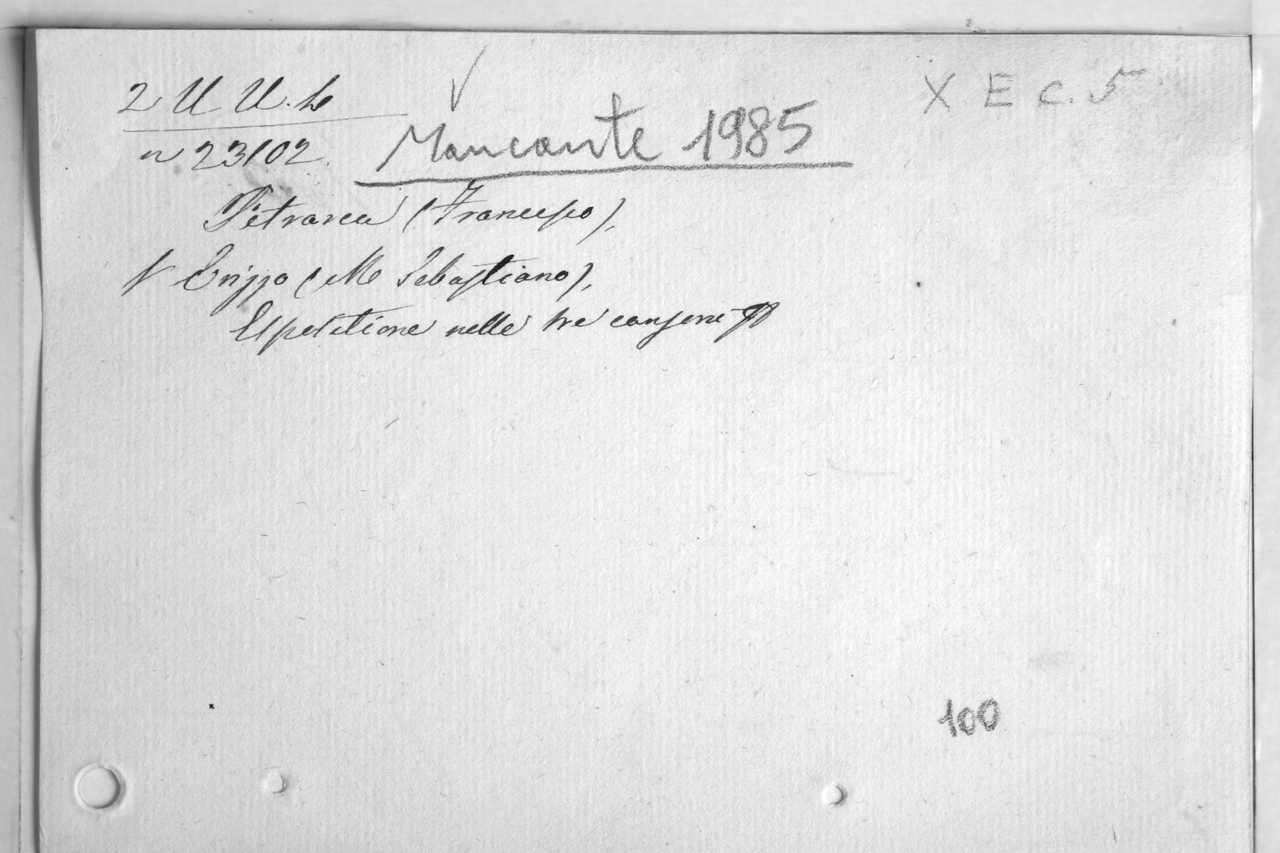 2 U U. h
X E c. 5
n 23102.
Mancante 1985
Petrarca (Francesco),
V Erizzo (M Sebastiano),
Espositione nelle tre canzoni
100